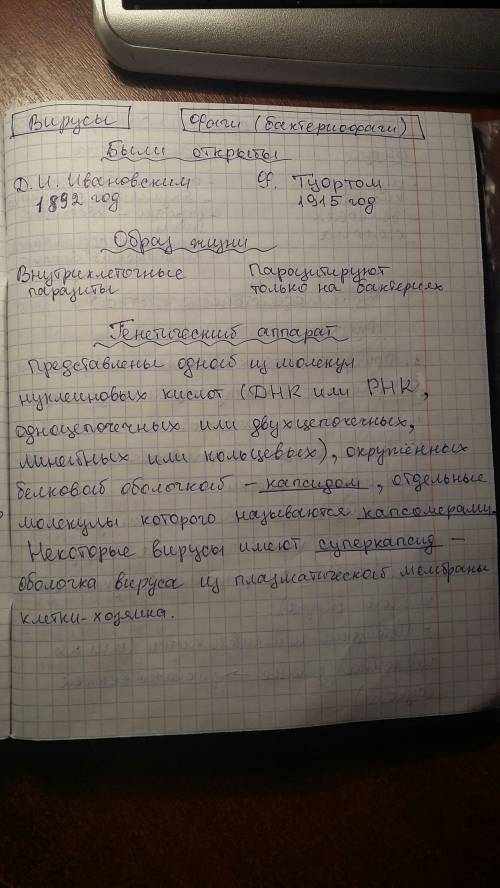 Вирусы Фаги (бактериофаги)
Были открыты
Д.И. Ивановским Ф. Туортом
1892 год 1915 год
Образ жизни
Внутриклеточные Парацитируют
паразиты только на бактериях
Генетический аппарат
Представлены одной из молекул
нуклеиновых кислот (ДНК или РНК,
одноцепочечных или двухцепочечных,
линейных или кольцевых), окружённых
белковой оболочкой - капсидом, отдельные
молекулы которого называются капсомерами.
Некоторые вирусы имеют суперкапсид -
оболочка вируса из плазматической мембраны
клетки-хозяина.